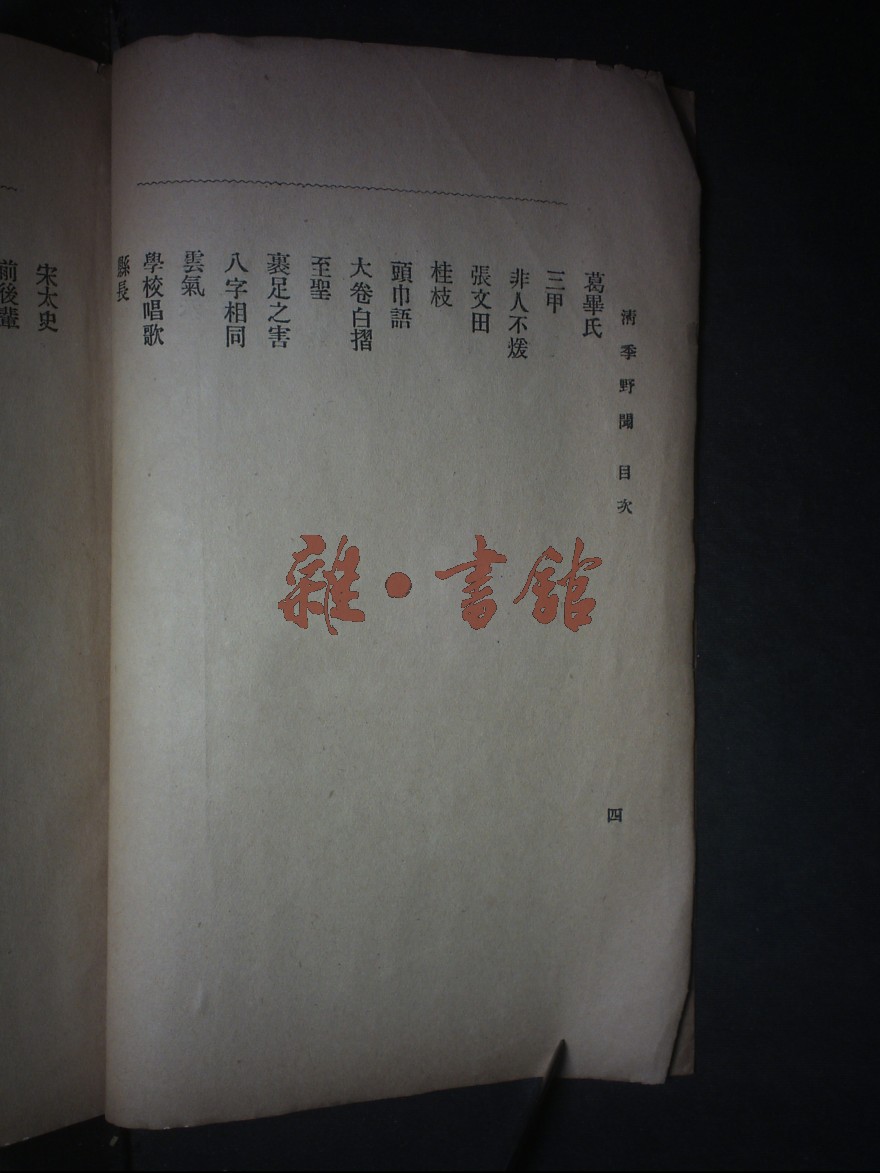 清季野聞 目次
四
葛畢氏
三甲
非人不煖
張文田
桂枝
頭巾語
大卷白摺
至聖
裹足之害
八字相同
雲氣
學校唱歌
縣長
宋太史
前後輩
雜·書館